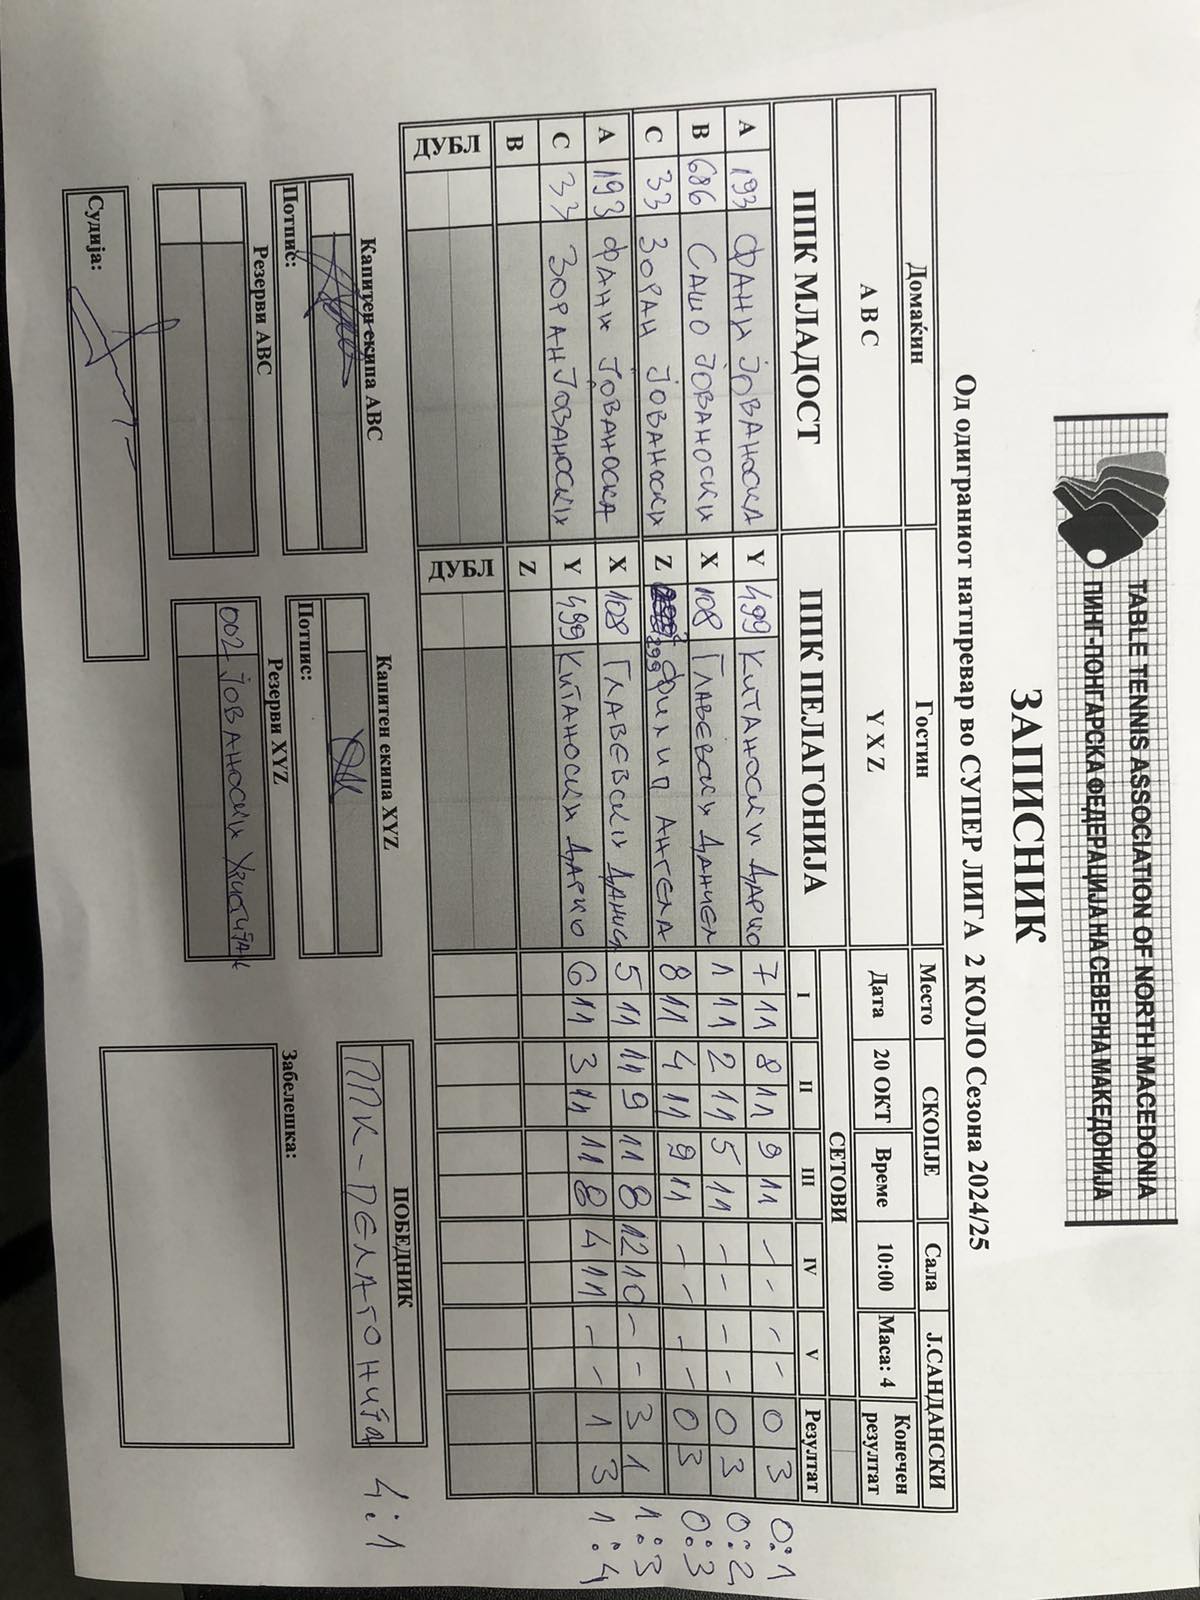 TABLE TENNIS ASSOCIATION OF NORTH MACEDONIA
ПИНГ-ПОНГАРСКА ФЕДЕРАЦИЈА НА СЕВЕРНА МАКЕДОНИЈА
ЗАПИСНИК
Од одиграниот натпревар во СУПЕР ЛИГА 2 КОЛО Сезона 2024/25
Домаќин Гостин Место СКОПЈЕ Сала Ј.САНДАНСКИ
A B C Y X Z Дата 20 ОКТ Време 10:00 Маса: 4 Конечен резултат
ППК МЛАДОСТ ППК ПЕЛАГОНИЈА СЕТОВИ
I II III IV V Резултат
A 193 ФАНИ ЈОВАНОСКА Y 499 КИТАНОСКИ ДАРКО 7 11 8 11 9 11 - - - - 0 3 0:1
B 686 САШО ЈОВАНОСКИ X 108 ГЛАВЕВСКИ ДАНИЕЛ 1 11 2 11 5 11 - - - - 0 3 0:2
C 33 ЗОРАН ЈОВАНОСКИ Z ФИЛИП АНГЕЛА 8 11 4 11 9 11 - - - - 0 3 0:3
A 193 ФАНИ ЈОВАНОСКА X 108 ГЛАВЕВСКИ 5 11 11 9 11 8 12 10 - - 3 1 1:3
C 33 ЗОРАН ЈОВАНОСКИ Y 499 КИТАНОСКИ ДАРКО 6 11 3 11 11 8 4 11 - - 1 3 1:4
B Z
ДУБЛ ДУБЛ
Капитен екипа ABC Капитен екипа XYZ ПОБЕДНИК
Потпис: Потпис: ППК - ПЕЛАГОНИЈА 4:1
Резерви ABC Резерви XYZ Забелешка:
002 ЈОВАНОСКИ
Судија: